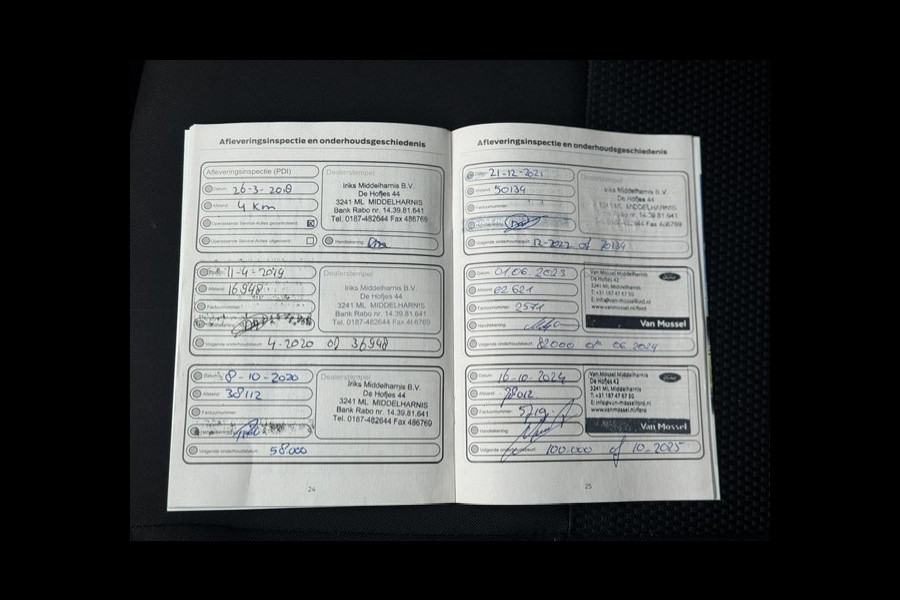 Afleveringsinspectie en onderhoudsgeschiedenis
Afleveringsinspectie (PDI)
Datum: 26-3-2018
Afstand: 4 Km
Openstaande Service Acties gecontroleerd:
Openstaande Service Acties uitgevoerd:
Handtekening:
Dealerstempel
Iriks Middelharnis B.V.
De Hofjes 44
3241 ML MIDDELHARNIS
Bank Rabo nr. 14.39.81.641
Tel. 0187-482644 Fax 486769
Datum: 11-4-2019
Afstand: 16948
Factuurnummer:
Volgende onderhoudsbeurt: 4-2020 of 36948
Dealerstempel
Iriks Middelharnis B.V.
De Hofjes 44
3241 ML MIDDELHARNIS
Bank Rabo nr. 14.39.81.641
Tel. 0187-482644 Fax 486769
Datum: 8-10-2020
Afstand: 38112
Factuurnummer:
Volgende onderhoudsbeurt: 58.000
Dealerstempel
Iriks Middelharnis B.V.
De Hofjes 44
3241 ML MIDDELHARNIS
Bank Rabo nr. 14.39.81.641
Tel. 0187-482644 Fax 486769
24
Afleveringsinspectie en onderhoudsgeschiedenis
Datum: 21-12-2021
Afstand: 50134
Factuurnummer:
Handtekening:
Volgende onderhoudsbeurt: 12-2022 of 70134
Dealerstempel
Iriks Middelharnis B.V.
De Hofjes 44
3241 ML MIDDELHARNIS
Bank Rabo nr. 14.39.81.641
Tel. 0187-482644 Fax 486769
Datum: 01.06.2023
Afstand: 62621
Factuurnummer: 2571
Handtekening:
Volgende onderhoudsbeurt: 82000 of 06.2024
Van Mossel Middelharnis
De Hofjes 42
3241 ML Middelharnis
T: +31 187 47 67 50
E: info@van-mosselford.nl
www.vanmossel.nl/ford
Ford
Van Mossel
Datum: 16-10-2024
Afstand: 78012
Factuurnummer: 5719
Handtekening:
Volgende onderhoudsbeurt: 100.000 of 10-2025
Van Mossel Middelharnis
De Hofjes 42
3241 ML Middelharnis
T: +31 187 47 67 50
E: info@van-mosselford.nl
www.vanmossel.nl/ford
Ford
Van Mossel
25